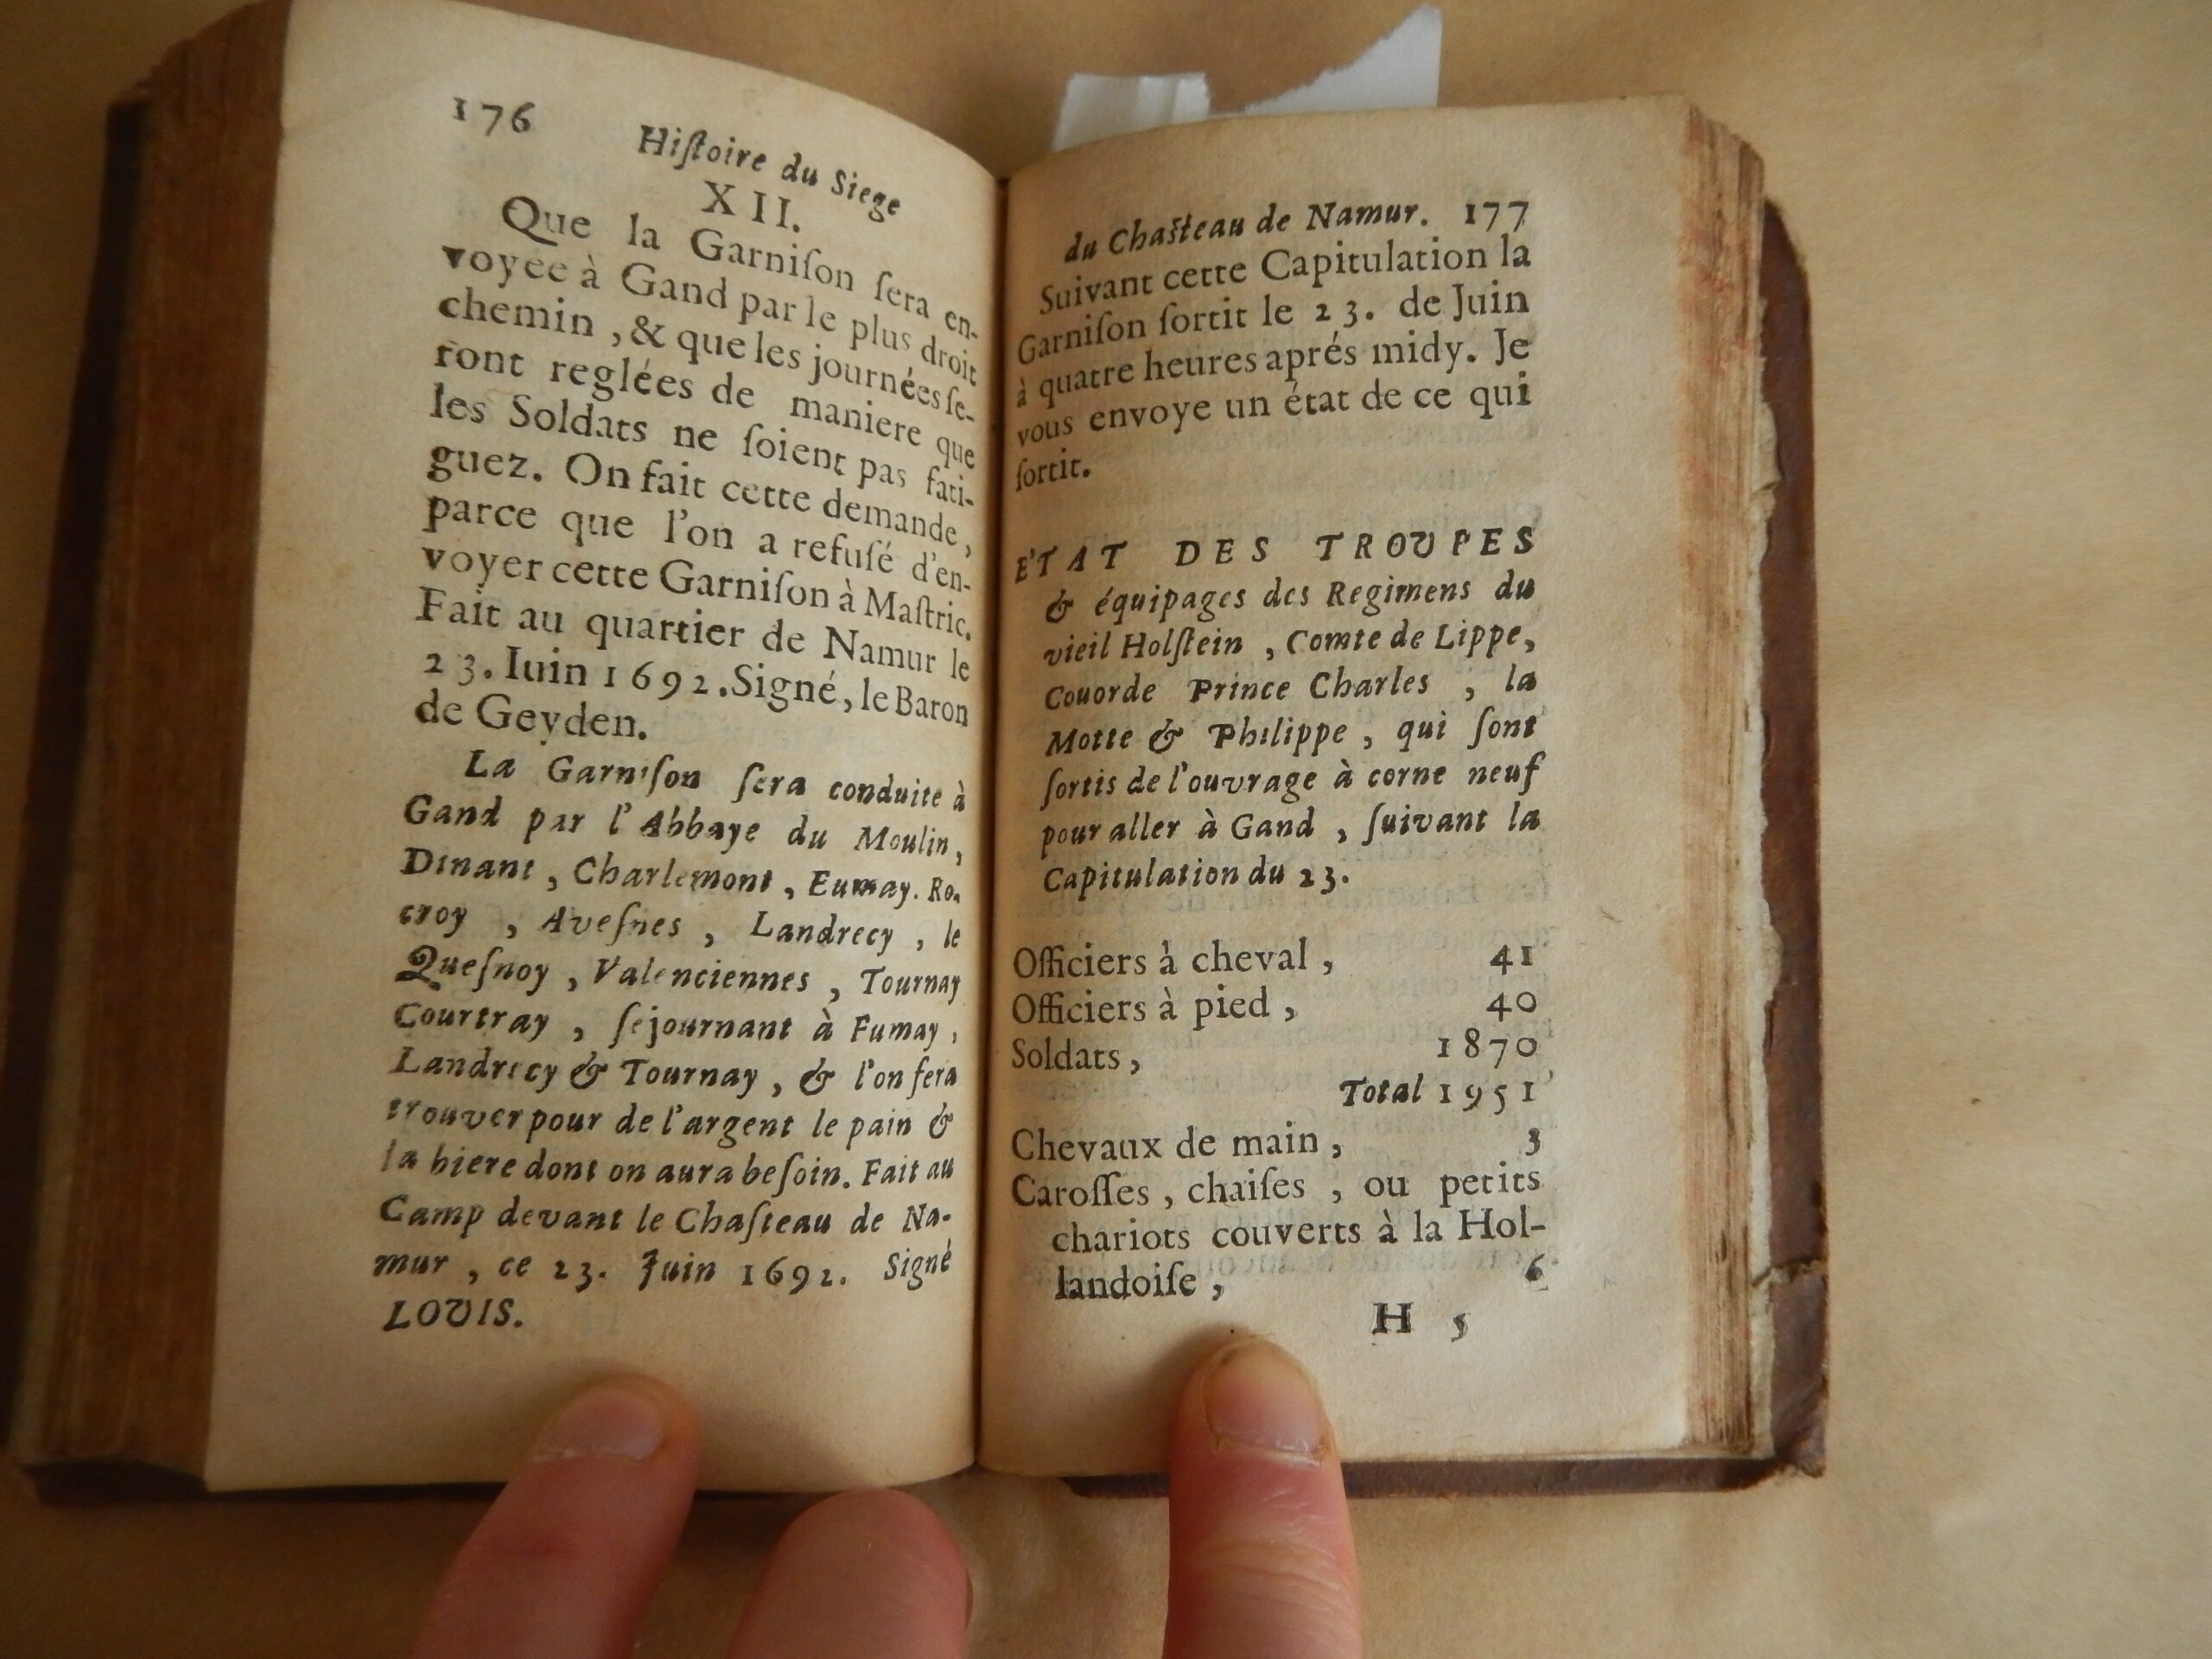 176 Hiſtoire du Siege
XII.
Que la Garniſon ſera en-
voyée à Gand par le plus droit
chemin , & que les journées ſe-
ront reglées de maniere que
les Soldats ne ſoient pas fati-
guez. On fait cette demande ,
parce que l'on a refuſé d'en-
voyer cette Garniſon à Maſtric.
Fait au quartier de Namur le
23. Iuin 1692. Signé, le Baron
de Geyden.
La Garniſon ſera conduite à
Gand par l'Abbaye du Moulin,
Dinant , Charlemont , Eumay. Ro-
croy , Aveſnes , Landrecy , le
Queſnoy , Valenciennes , Tournay
Courtray , ſejournant à Fumay ,
Landrecy & Tournay , & l'on fera
trouver pour de l'argent le pain &
la biere dont on aura beſoin. Fait au
Camp devant le Chaſteau de Na-
mur , ce 23. Juin 1692. Signé
LOUIS.
du Chaſteau de Namur. 177
Suivant cette Capitulation la
Garniſon ſortit le 23. de Juin
à quatre heures aprés midy. Je
vous envoye un état de ce qui
ſortit.
E'TAT DES TROUPES
& équipages des Regimens du
vieil Holſtein , Comte de Lippe,
Couorde Prince Charles , la
Motte & Philippe , qui ſont
ſortis de l'ouvrage à corne neuf
pour aller à Gand , ſuivant la
Capitulation du 23.
Officiers à cheval , 41
Officiers à pied , 40
Soldats , 1870
Total 1951
Chevaux de main , 3
Caroſſes , chaiſes , ou petits
chariots couverts à la Hol-
landoiſe , 6
H 5